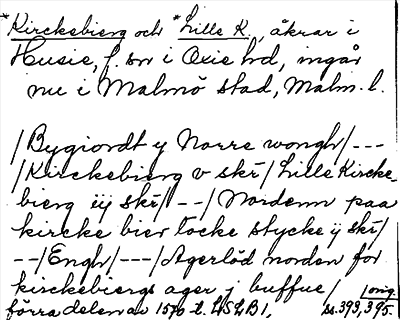 *Kirckebierg och *Lille K., åkrar i
Husie, f. sn i Oxie hd, ingår
nu i Malmö stad, Malm. l.
/Bygiordt y Norre wongh/---
/Kirckebierg v skr/ Lille Kircke-
bierg iij skr/ --/ Nordenn paa
kircke bier tocke stycke ij skr/
--/Engh/---/Agerlöd norden for
kirckebiergs ager j buffue/ orig.
förra delen av 1570 t. LSLB 1, ss. 393, 395.